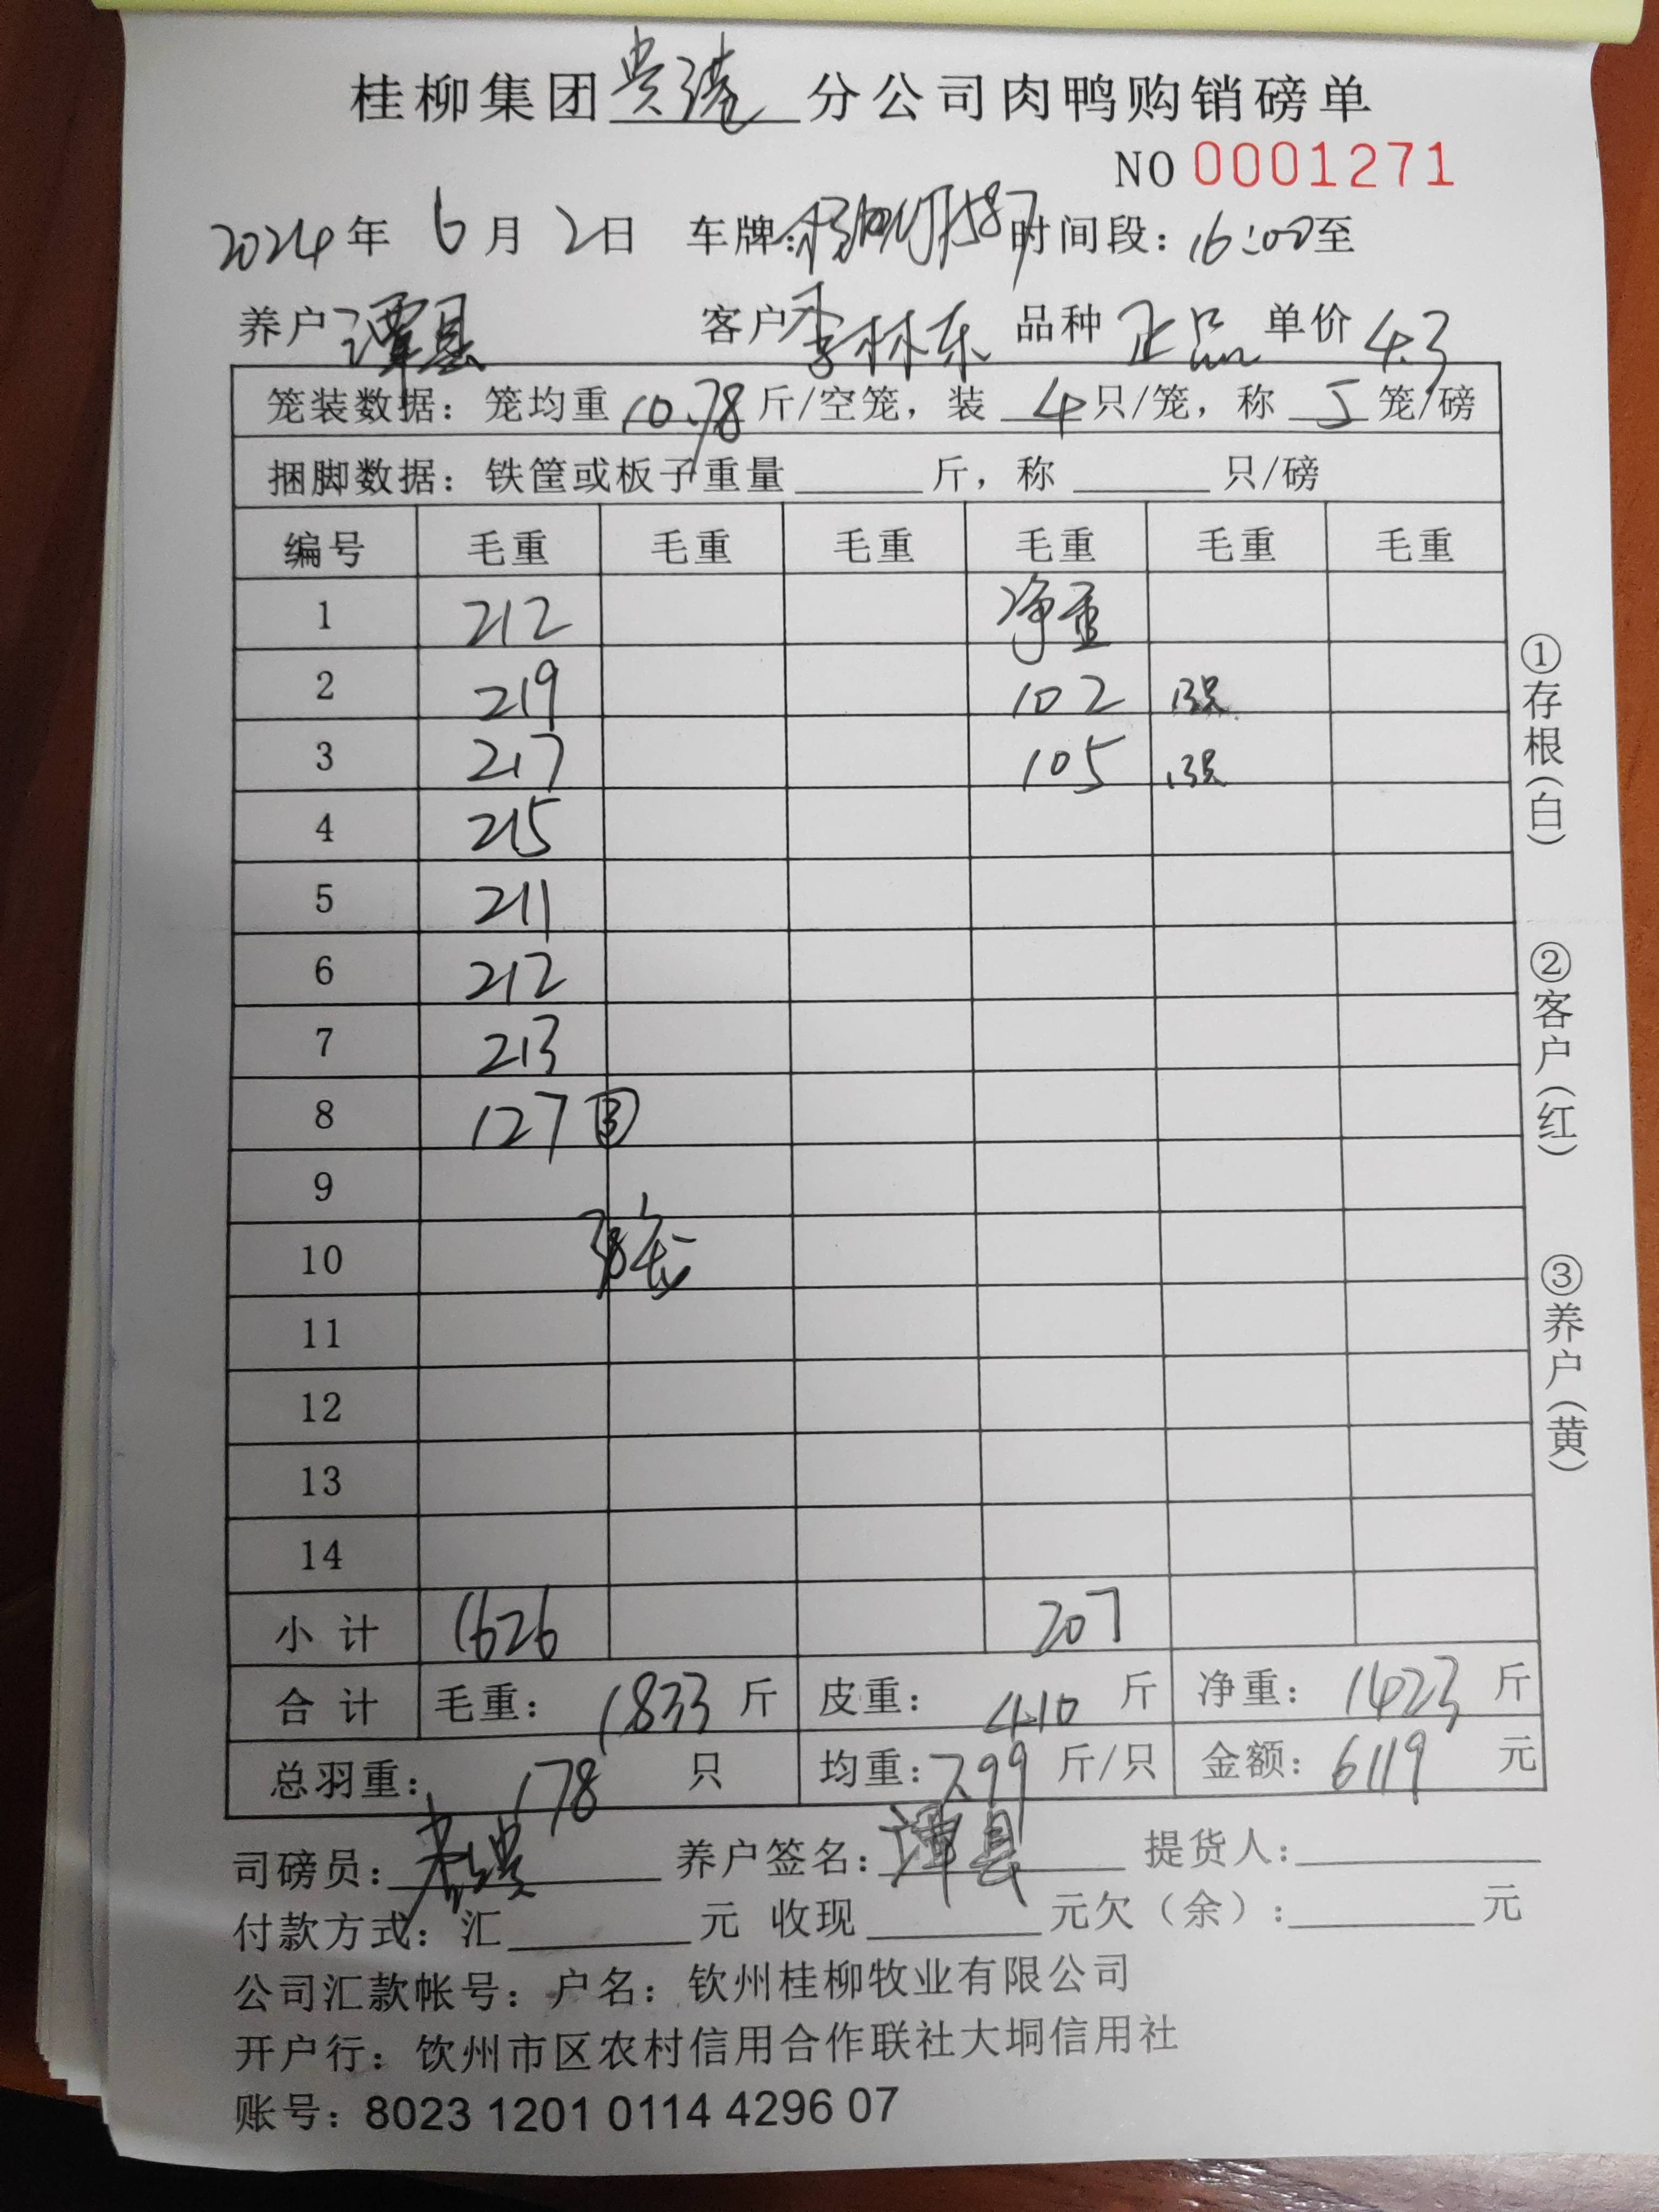 桂柳集团贵港分公司肉鸭购销磅单
NO 0001271
2024年 6月 2日 车牌: 587 时间段: 16:00至
养户 谭县 客户 李林东 品种 正品 单价 4.3
笼装数据: 笼均重 10.78 斤/空笼, 装 4 只/笼, 称 5 笼/磅
捆脚数据: 铁筐或板子重量______斤, 称______只/磅
编号 毛重 毛重 毛重 毛重 毛重 毛重
1 212 净重
2 219 102 13只
3 217 105 13只
4 215
5 211
6 212
7 213
8 127 ③
9
10 38笼
11
12
13
14
小计 1626 207
合计 毛重: 1833 斤 皮重: 410 斤 净重: 1423 斤
总羽重: 178 只 均重: 7.99 斤/只 金额: 6119 元
司磅员: 养户签名: 谭县 提货人:
付款方式: 汇______元 收现______元欠(余):______元
公司汇款帐号: 户名: 钦州桂柳牧业有限公司
开户行: 钦州市区农村信用合作联社大垌信用社
账号: 8023 1201 0114 4296 07
①存根(白)
②客户(红)
③养户(黄)